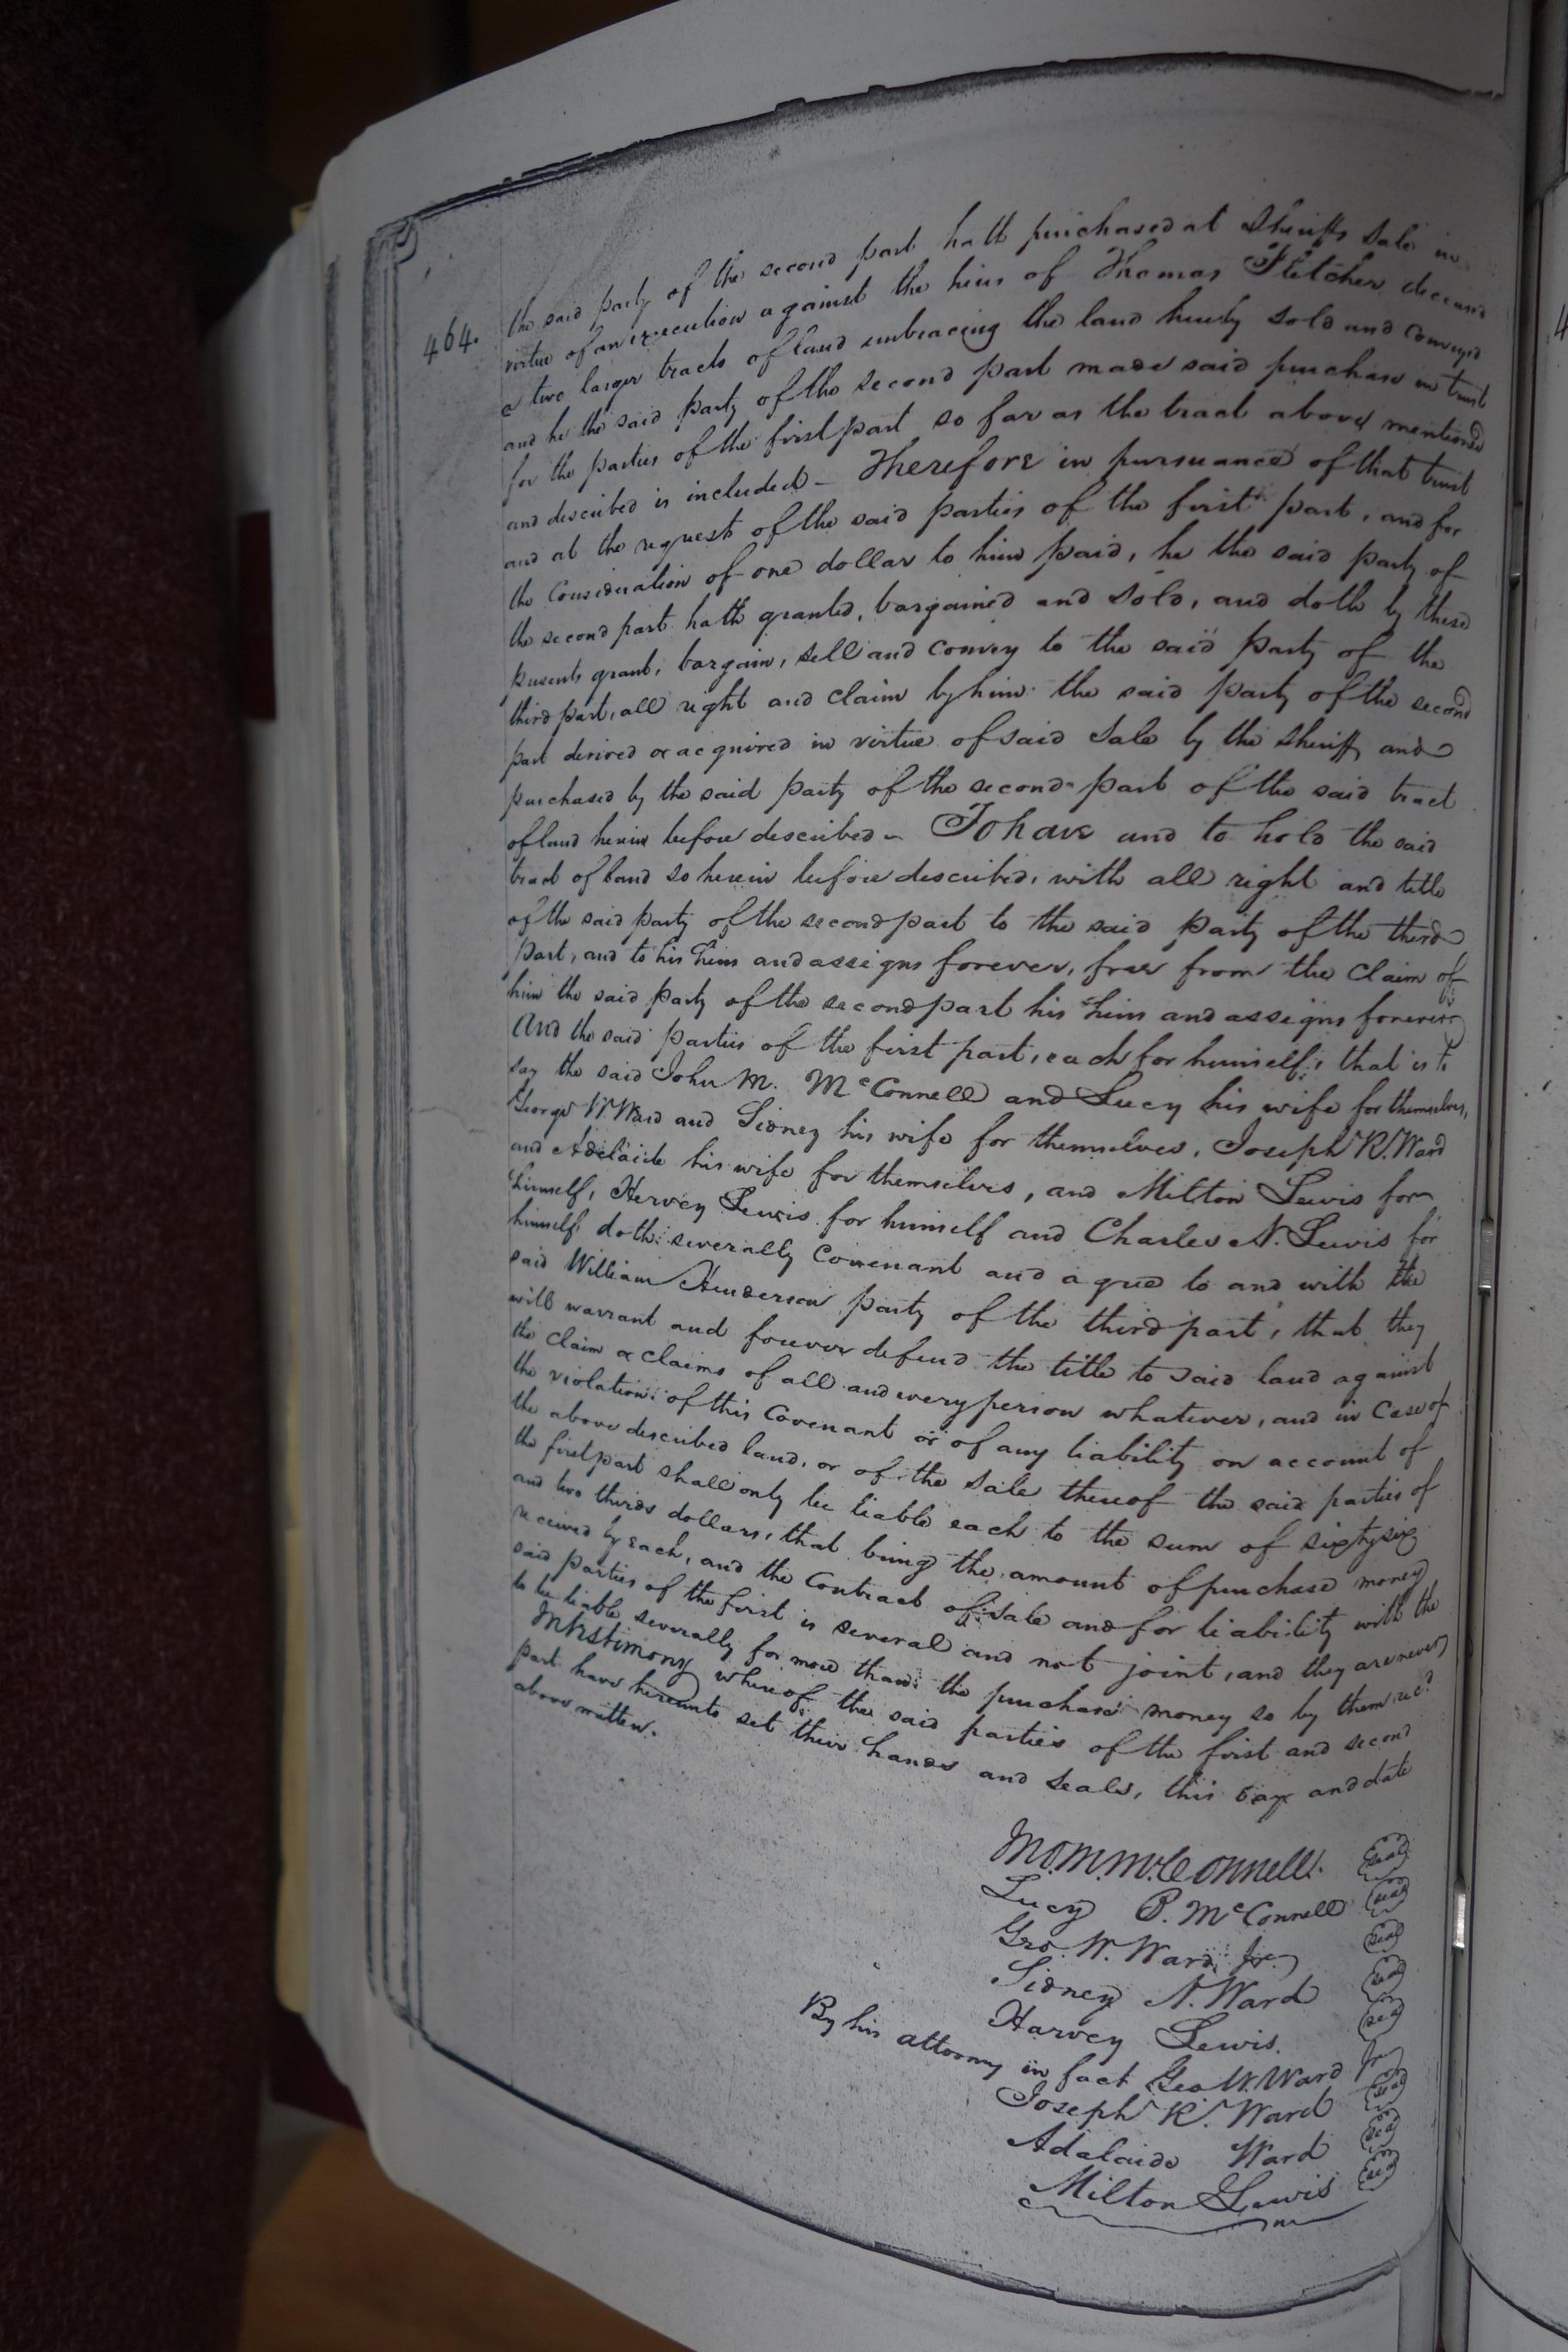 464.
the said party of the second part hath purchased at Sheriffs Sale in
virtue of an execution against the heirs of Thomas Fletcher deceased
a two larger tracts of land embracing the land hereby sold and conveyed
and he the said party of the second part made said purchase in trust
for the parties of the first part so far as the tract above mentioned
and described is included - Therefore in pursuance of that trust
and at the request of the said parties of the first part, and for
the Consideration of one dollar to him paid, he the said party of
the second part hath granted, bargained and Sold, and doth by these
presents grant, bargain, sell and Convey to the said Party of the
third part, all right and claim by him the said party of the second
part derived or acquired in virtue of said Sale by the Sheriff and
purchased by the said party of the second part of the said tract
of land herein before described - To have and to hold the said
tract of land so herein before described, with all right and title
of the said party of the second part to the said party of the third
Part, and to his heirs and assigns forever, free from the claim of
him the said party of the second part his heirs and assigns forever
And the said parties of the first part, each for himself, that is to
say the said John M. McConnell and Lucy his wife for themselves,
George W Ward and Sidney his wife for themselves, Joseph R. Ward
and Adelaide his wife for themselves, and Milton Lewis for
himself, Hervey Lewis for himself and Charles N. Lewis for
himself doth severally Covenant and agree to and with the
said William Henderson party of the third part, that they
will warrant and forever defend the title to said land against
the claim or claims of all and every person whatever, and in Case of
the violation of this Covenant or of any liability on account of
the above described land, or of the Sale thereof the said parties of
the first part shall only be liable each to the sum of sixty six
and two thirds dollars, that being the amount of purchase money
received by each, and the Contract of Sale and for liability with the
said parties of the first is several and not joint, and they are never
to be liable severally for more than the purchase money so by them recd
In testimony whereof the said parties of the first and second
part have hereunto set their hands and seals, this day and date
above written.
McConnell. Seal
Lucy P. McConnell Seal
Geo. W. Ward, Jr. Seal
Sidney N. Ward Seal
Harvey Lewis. Seal
By his attorney in fact Geo W. Ward Jr
Joseph R. Ward Seal
Adalaide Ward Seal
Milton Lewis Seal